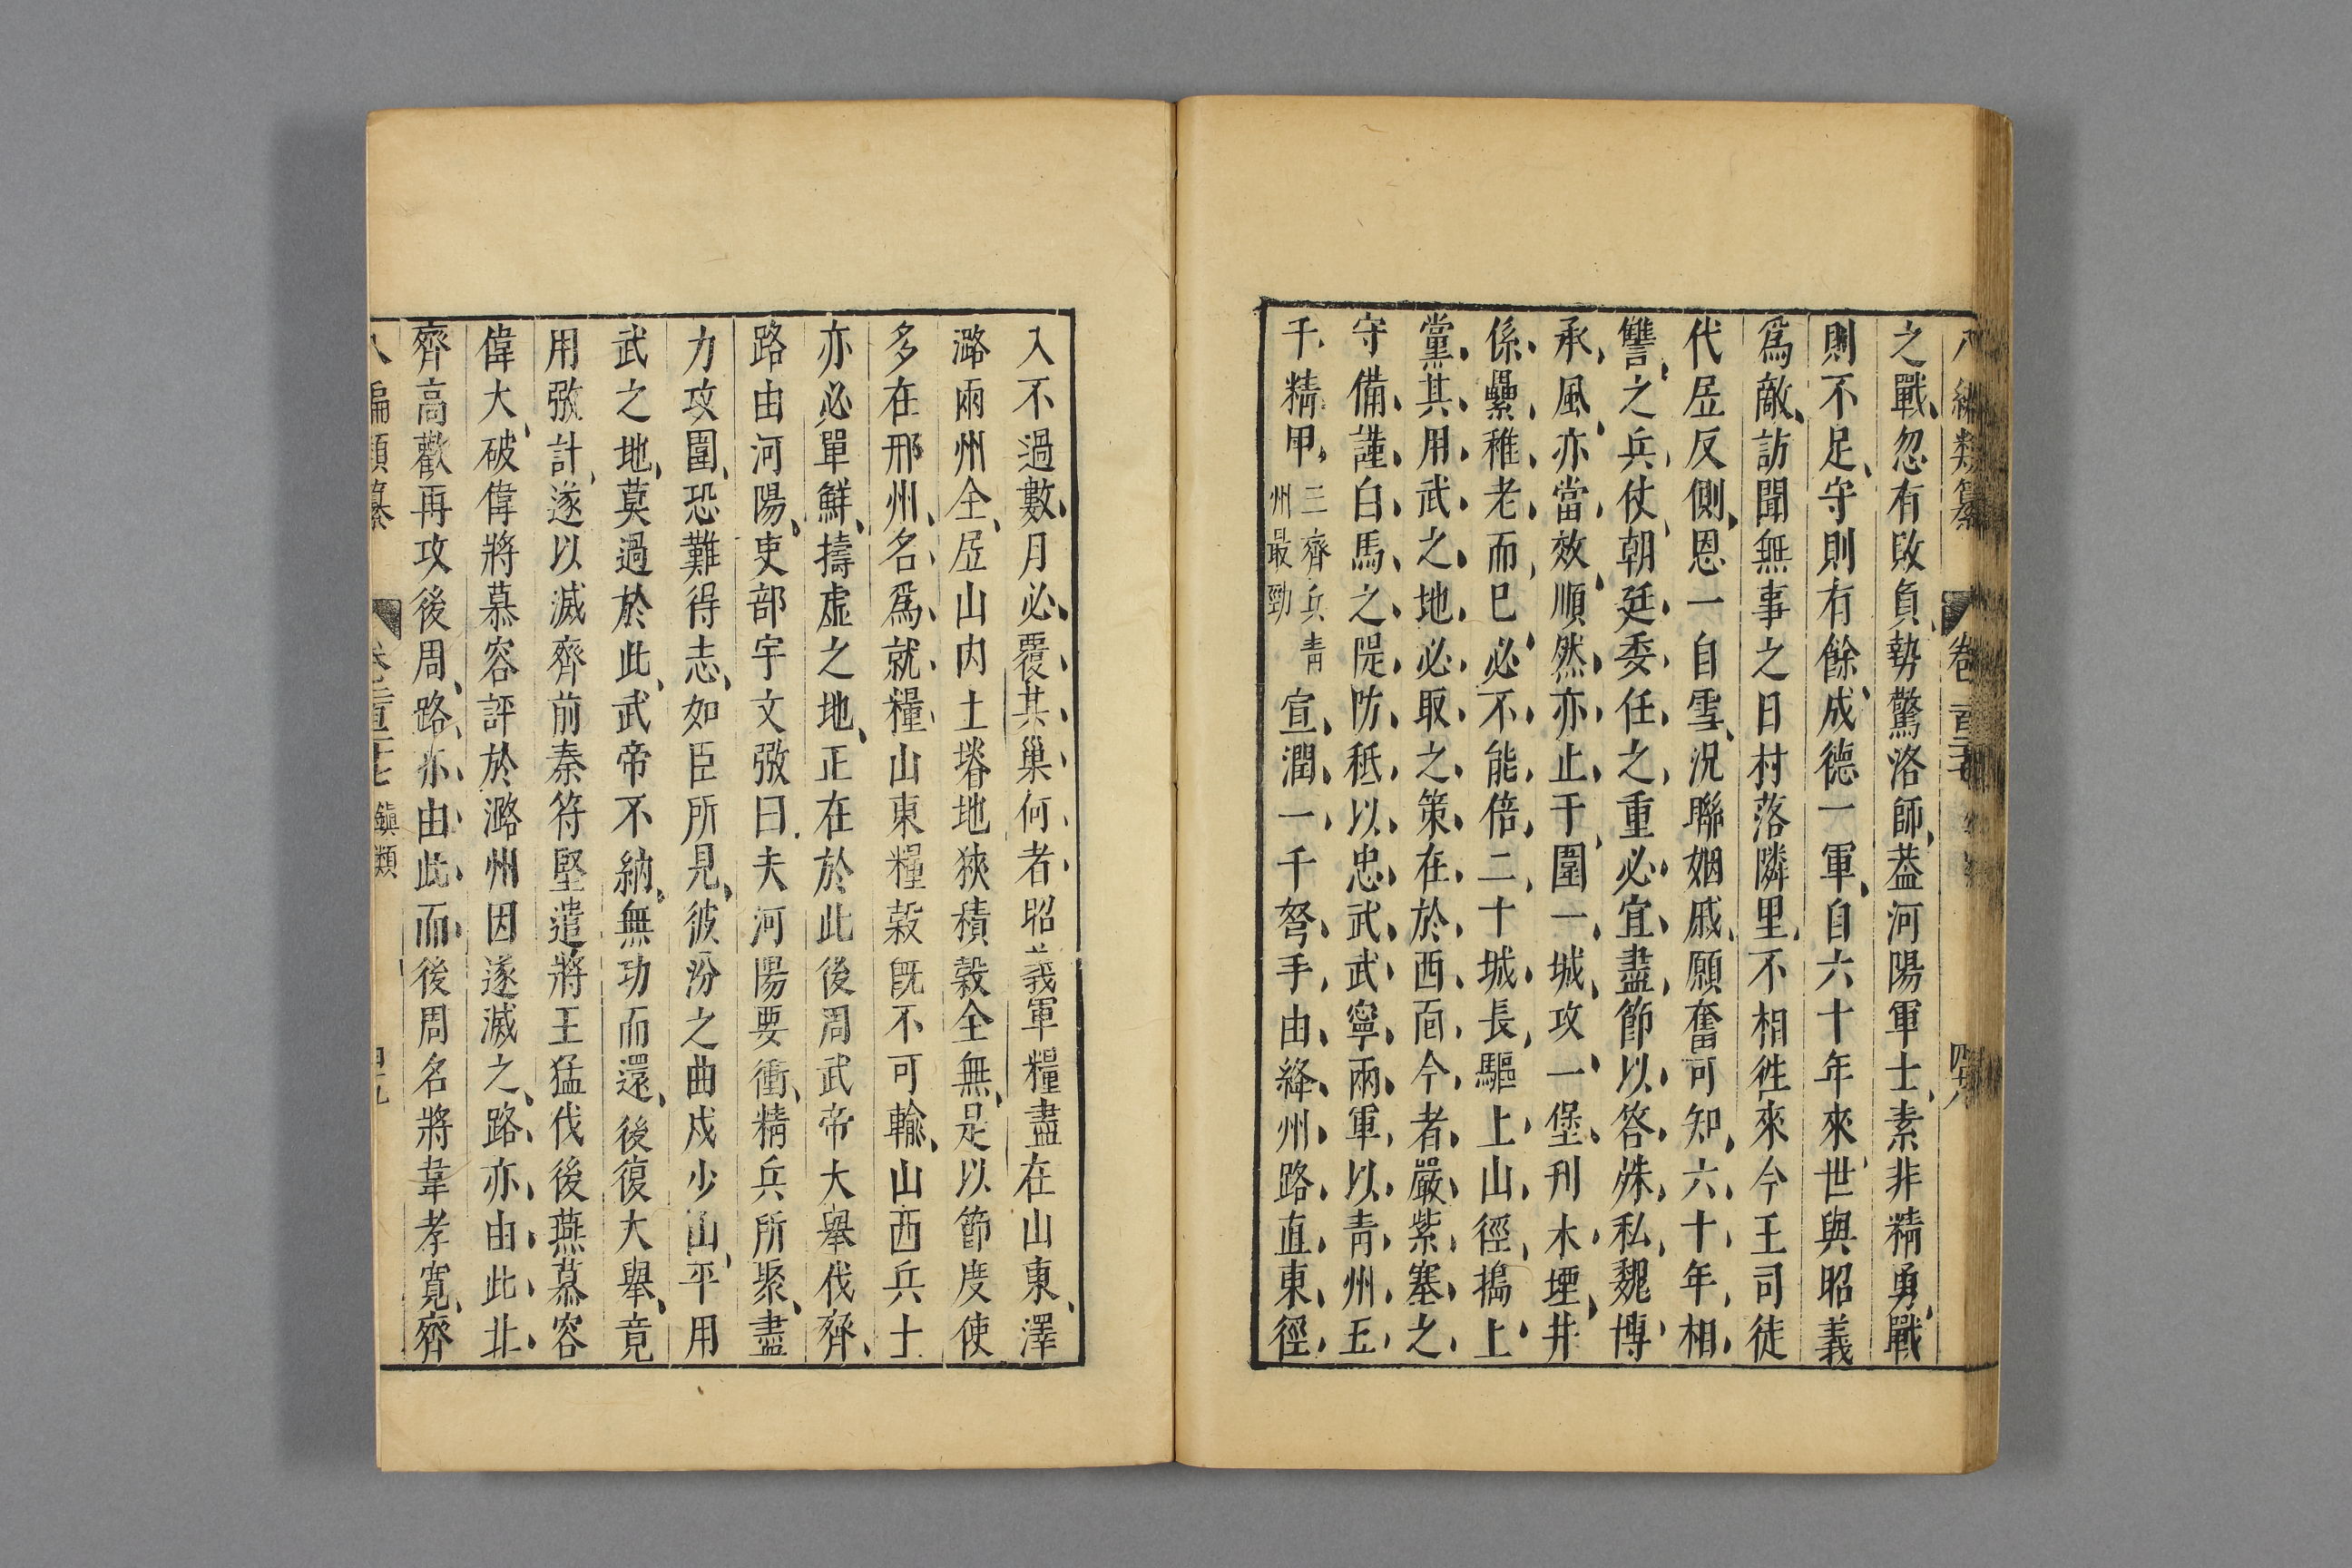 八編類纂 卷一百三十七 四十八
之戰忽有敗負勢驚洛師葢河陽軍士素非精勇戰
則不足守則有餘成德一軍自六十年來世與昭義
爲敵訪聞無事之日村落隣里不相徃來今王司徒
代居反側恩一自雪況聯姻戚願奮可知六十年相
讐之兵仗朝廷委任之重必宜盡節以答殊私魏博
承風亦當效順然亦止于圍一城攻一堡刋木堙井
係纍稚老而已必不能倍二十城長驅上山徑搗上
黨其用武之地必取之策在於西面今者嚴紫塞之
守備謹白馬之隄防秪以忠武武寧兩軍以青州五
千精甲
三齊兵青
州最勁
宣潤一千弩手由絳州路直東徑
入不過數月必覆其巢何者昭義軍糧盡在山東澤
潞兩州全居山内土塉地狹積穀全無是以節度使
多在邢州名爲就糧山東糧穀旣不可輸山西兵士
亦必單鮮擣虛之地正在於此後周武帝大舉伐齊
路由河陽吏部宇文㢸曰夫河陽要衝精兵所聚盡
力攻圍恐難得志如臣所見彼汾之曲戍少山平用
武之地莫過於此武帝不納無功而還後復大舉竟
用㢸計遂以滅齊前秦符堅遣將王猛伐後燕慕容
偉大破偉將慕容評於潞州因遂滅之路亦由此北
齊高歡再攻後周路亦由此而後周名將韋孝寬齊
八編類纂 卷之一百三十七 鎭類 四十九